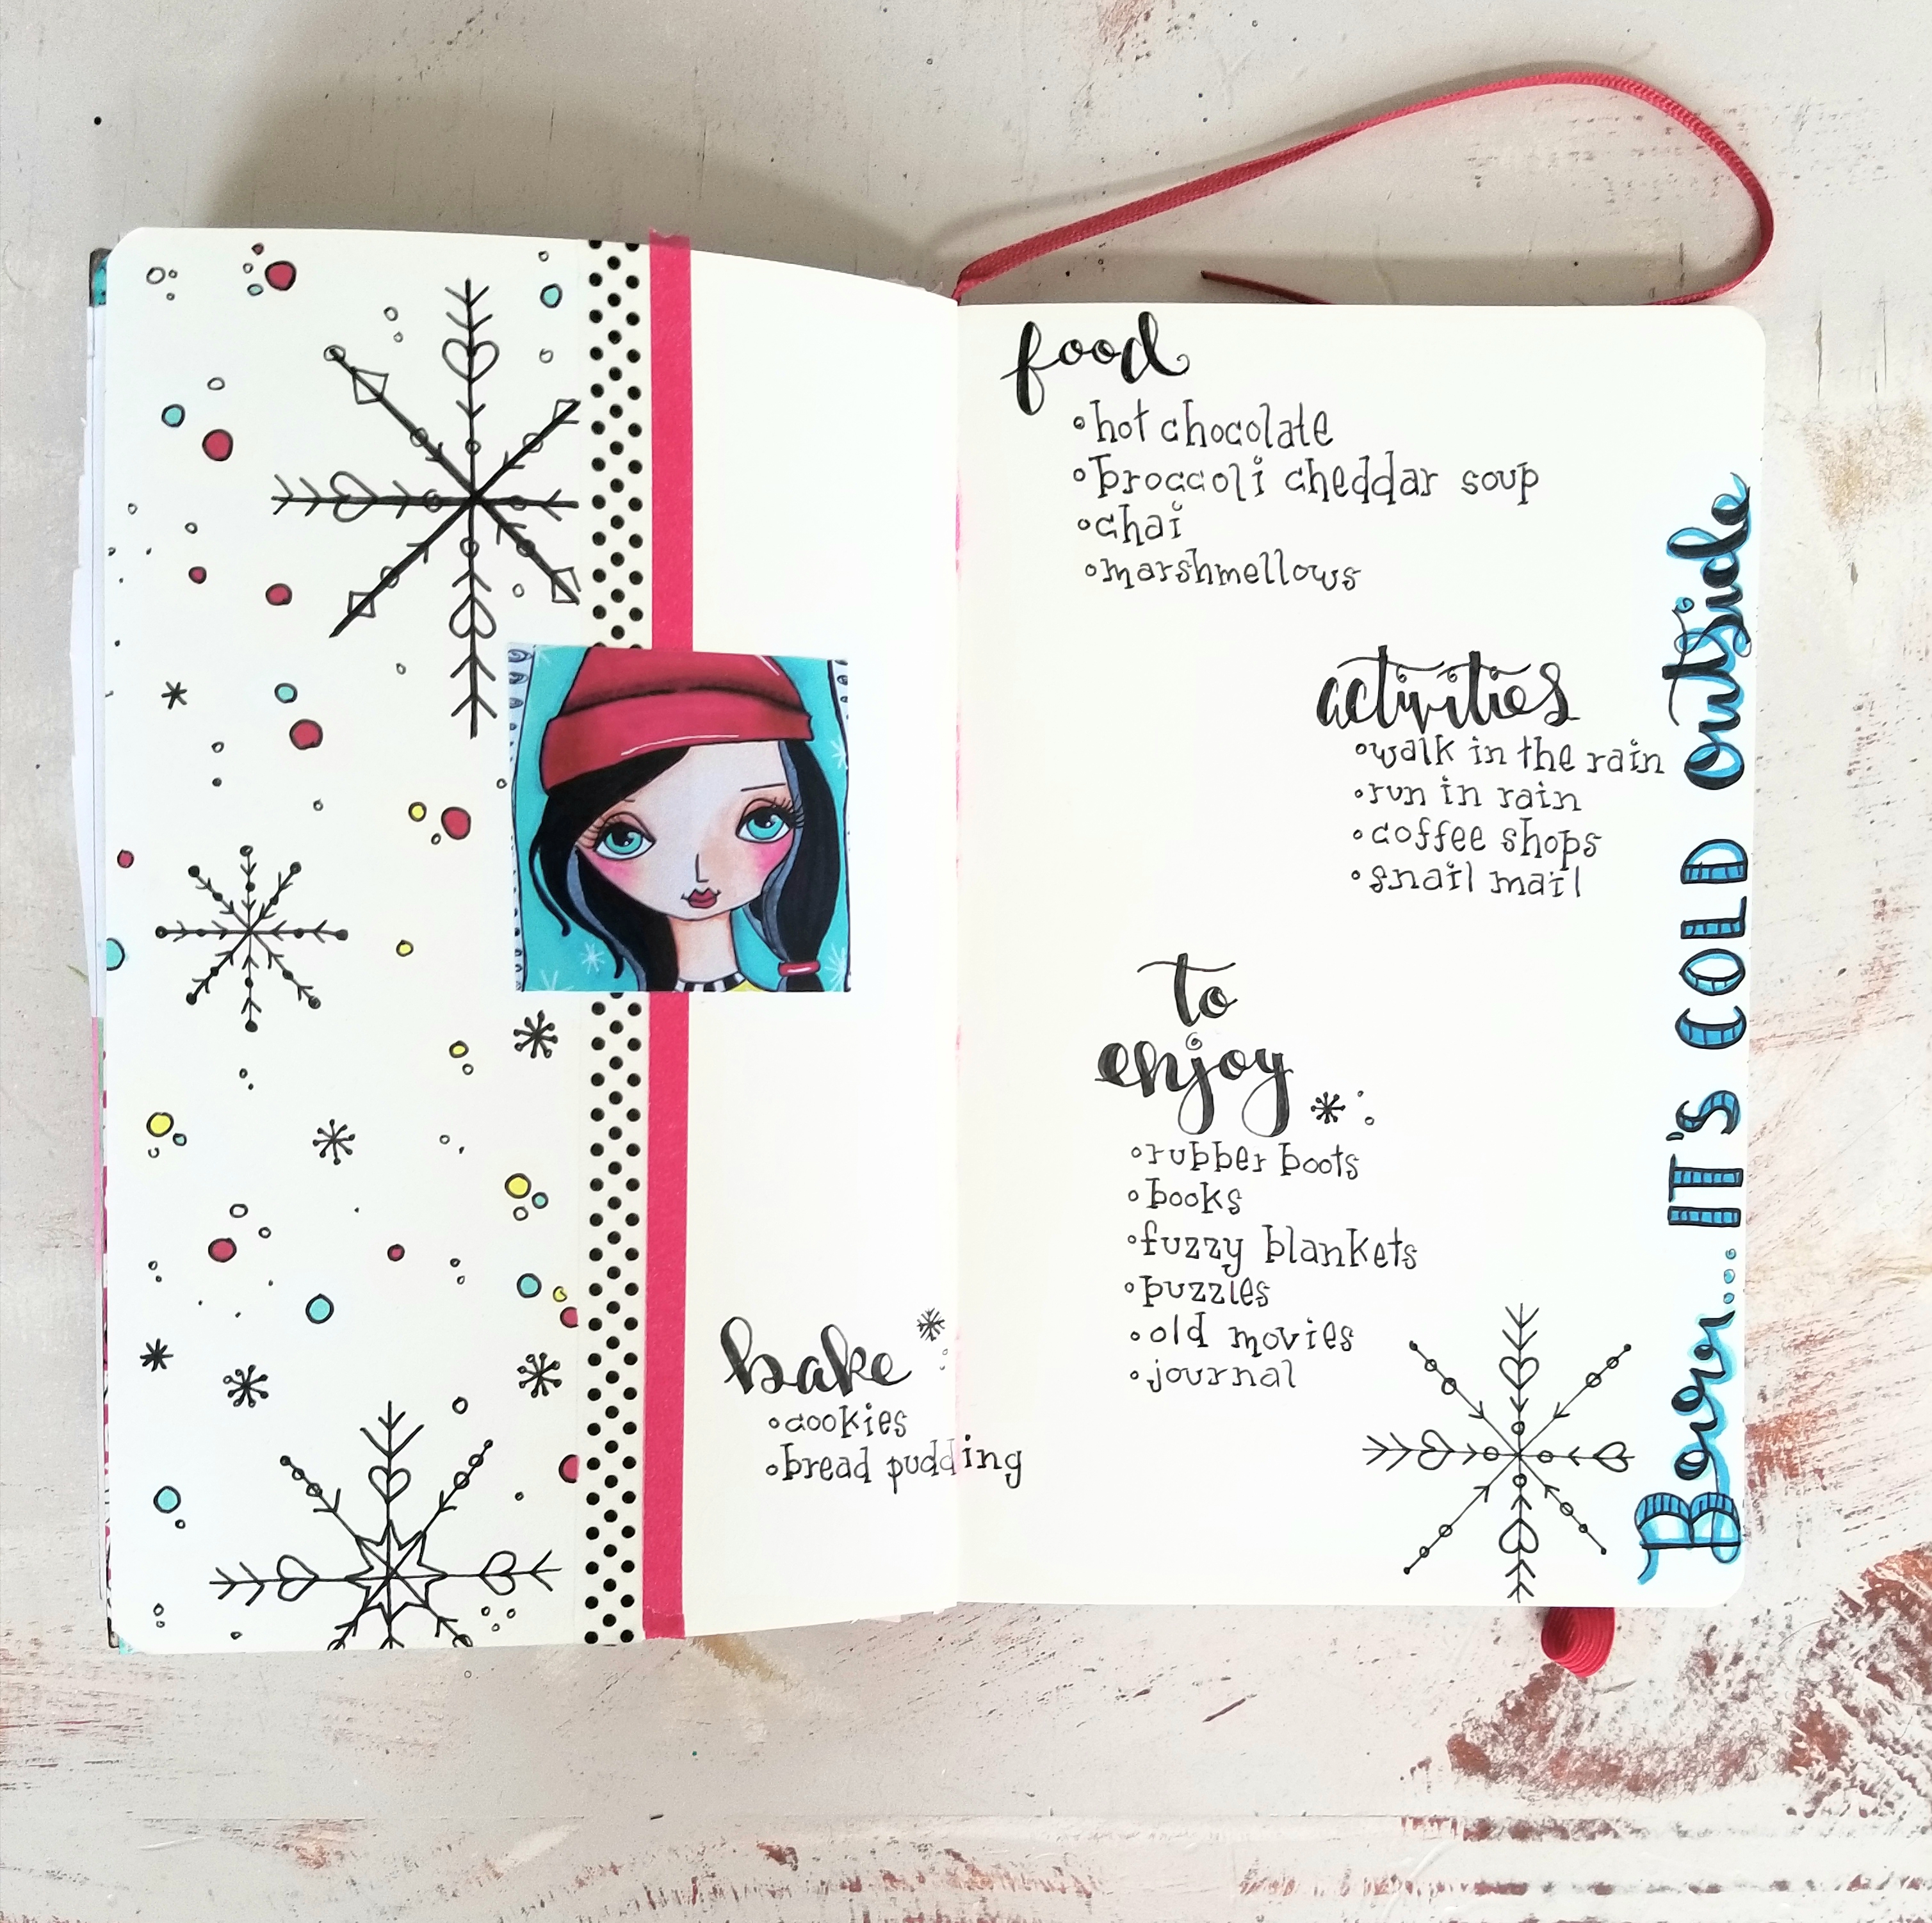 food
hot chocolate
broccoli cheddar soup
chai
marshmellows
activities
walk in the rain
run in rain
coffee shops
snail mail
to
enjoy
rubber boots
books
fuzzy blankets
puzzles
old movies
journal
bake
cookies
bread pudding
Baby... IT'S COLD outside